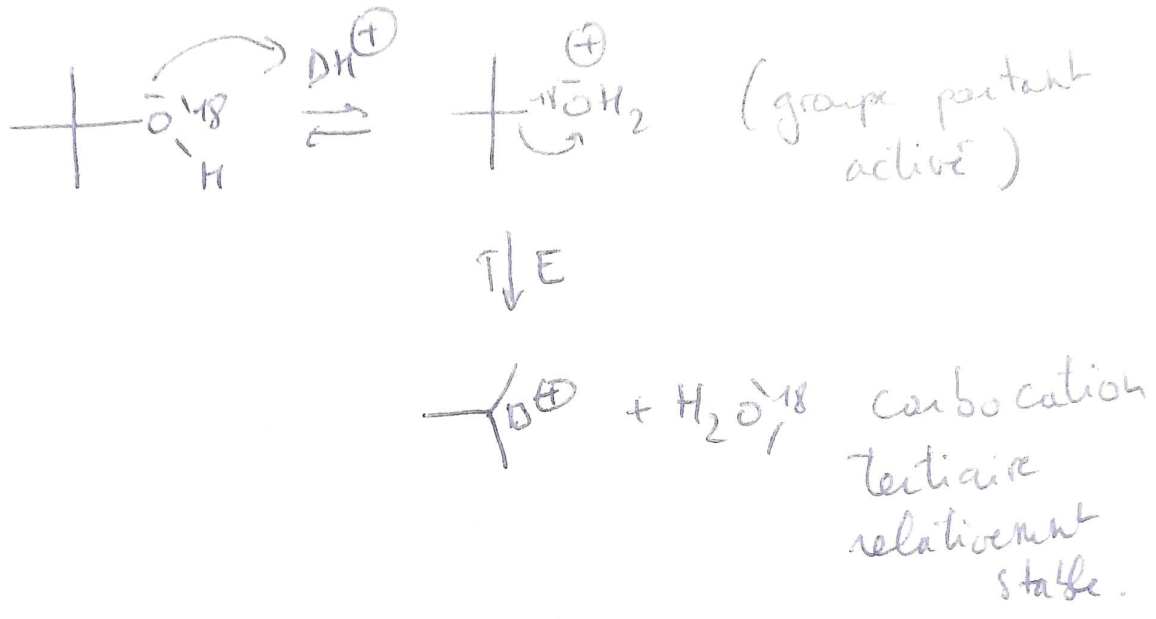 DH⊕
O 18
H
⊕
18 OH2
(groupe partant
activé)
E
⊕ + H2O 18
carbocation
tertiaire
relativement
stable.